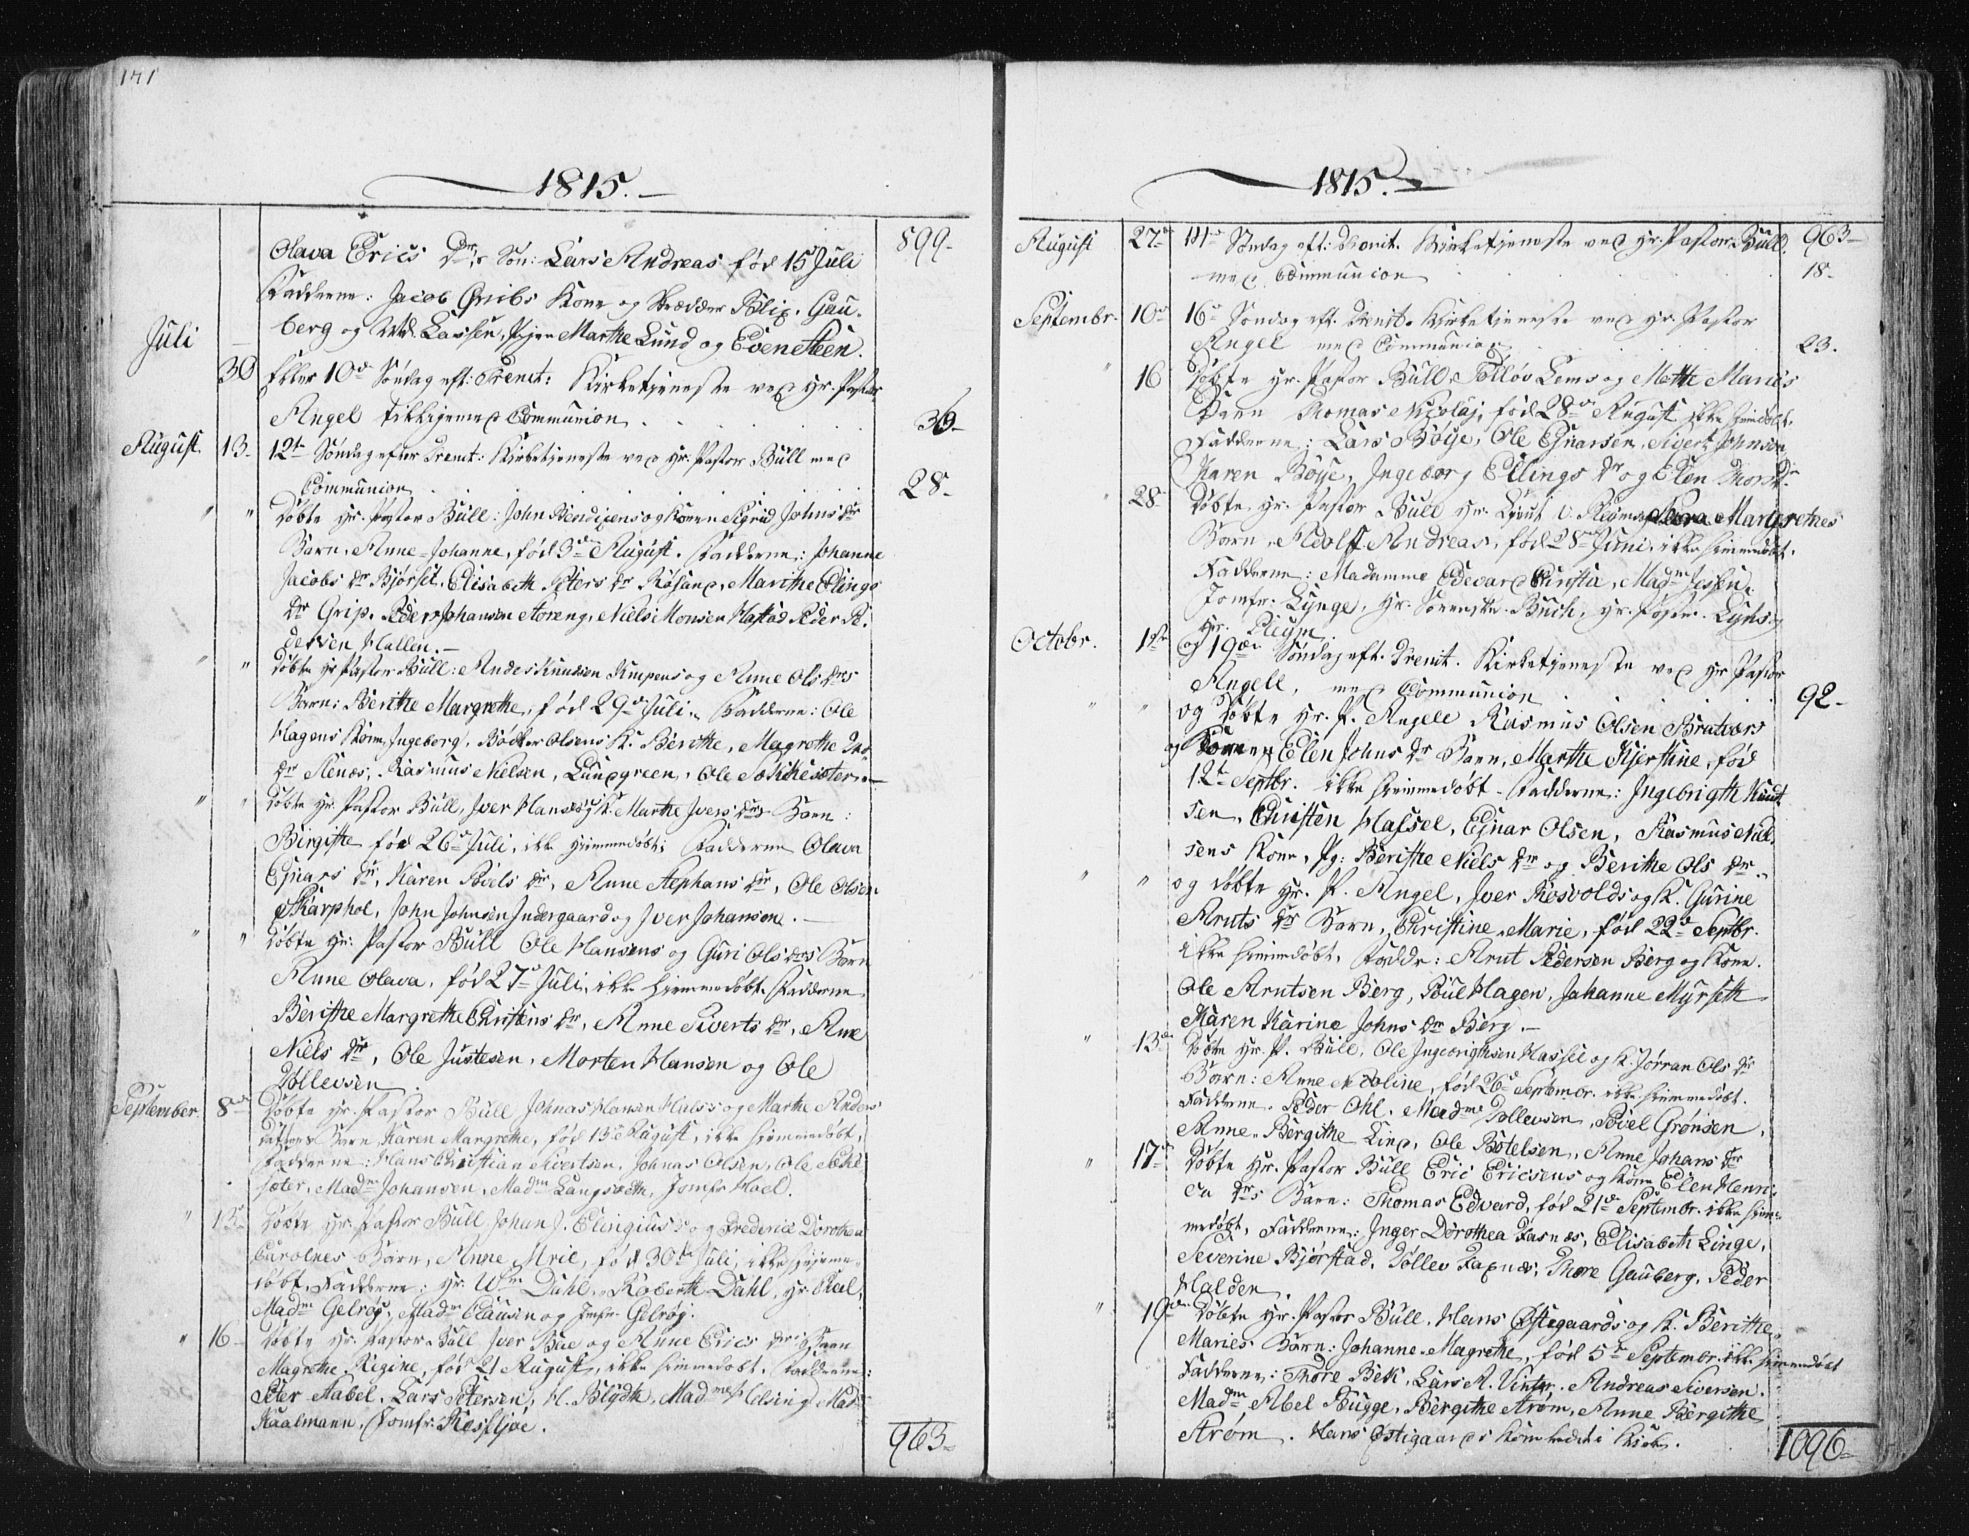 171
1815.
Olava Erics Dr's Søn: Lars Andreas fød 15 Juli 899-
Fadderne: Jacob Gribs Kone og Skrædder Blix. Gau-
Juli berg og Md. Lassen, Pigen Marthe Lund og Even Steen.
30 Eller 10de Søndag eft: Trinit: Kirketjeneste ved Hr. Pastor
Angel tilligemed Communion 36-
August. 13- 12te Søndag efter Trinit: Kirketjeneste ved Hr. Pastor Bull med
Communion 28-
" " Døbte Hr. Pastor Bull: John Bendixens og Konen Sigrid Johns Dr
Barn, Anne-Johanne, fød 3de August. Fadderne: Johanne
Jacobs Dr Bjørset, Elisabeth Peters Dr Røsand, Marithe Elings
Dr Grip. Peder Johansen Storeng, Niels Monsen Hastad Peder Pe-
dersen Hallen.-
" " Døbte Hr Pastor Bull: Andes Knudsen Knipens og Anne Ols Drs
Barn: Berithe Margrethe, fød 29de Juli. Fadderne: Ole
Hagens Kone, Ingeborg, Bødker Olsens K. Berithe, Magrethe
Dr Stenæs, Rasmus Nielsen, Lundgreen, Ole Sækkesæter.-
" " Døbte Hr. Pastor Bull, Iver Hansens og K. Marthe Ivers Drs Barn:
Birgithe fød 26de Juli, ikke hjemmedøbt; Fadderne Olava
Ejnars Dr, Karen Povels Dr, Anne Stephans Dr, Ole Olsen
Skarphol, John Johnsen Indergaard og Iver Johansen.-
" " Døbte Hr. Pastor Bull Ole Hansens og Guri Ols Drs Barn
Anne Olava, fød 27de Juli, ikke hjemmedøbt. Fadderne
Berithe Margrethe Christens Dr, Anne Siverts Dr, Ane
Niels Dr, Ole Justesen, Morten Hansen og Ole
Tollevsen.
September 8de Døbte Hr. Pastor Bull Johnas Hansen Huless og Marthe Anders
datters Barn, Karen Margrethe, fød 13de August, ikke hjemmedøbt,
Fadderne: Hans Christian Sivertsen, Johnas Olsen, Ole Sæke
sæter, Madm Johansen, Madm Langsæth, Jomfr Hoel.
" Døbte Hr. Pastor Bull Johan J. Elingius's og Frederica Dorothea
Carolnes Barn, Anne Mrie, fød 30te Juli, ikke hjemme-
døbt, Fadderne: Hr. Wm Dahl, Roberth Dahl, Hr.
Madm Gelrøg, Madm Clausen og Jmfr. Gelrøg.
" 16- Døbte Hr. Pastor Bull Iver Bue og Anne Erics Drs Barn
Magrethe Regine, fød 21 August, ikke hjemmedøbt. Fadderne:
Peter Aabel, Lars Petersen, H. Blydth, Madme Helsing Mad
Kaalmann, Jomfr. Rosstjøe. 963-
1815.
August 27de 14de Søndag eft: Trinit. Kirketjeneste ved Hr. Pastor Bull 963-
med Communion 18-
Septembr. 10de 16de Søndag eft. Trinit. Kirketjeneste ved Hr. Pastor
Angel med Communion 23.
" 16 Døbte Hr. Pastor Bull, Tolløv Lems og Mette Maries
Barn Thomas Nicolaj, fød 28de August ikke hjemdøbt.
Fadderne: Lars Bøye, Ole Ejnarsen, Sivert Johnsen
Karen Bøye, Ingeborg Ellings Dr og Elen Thors Dr.
" 28 Døbte Hr. Pastor Bull Hr. Lieut v. Margrethes
Barn Adolff Andreas, fød 28de Juni, ikke hjemmedøbt.
Fadderne: Madamme Edevard Christie, Madm Jessen,
Jomfr. Lynge, Hr. Buch, Hr. Lyhs.
Hr. Pleym.
Octobr. 1ste og 19de Søndag eft. Trenit. Kirketjeneste ved Hr Pastor
Angell, med Communion 92-
" " og Døbte Hr. P. Angell Rasmus Olsen Bratværs
og Konen Elen Johns Dr Barn, Marthe Kjerstine, fød
12te Septbr. ikke hjemmedøbt. Fadderne: Ingebrigth Knud
sen, Christen Hassel, Ejnar Olsen, Rasmus Niel-
sens Kone, Pg: Berithe Niels Dr og Berithe Ols Dr.
" " og døbte Hr. P. Angel, Iver Rosvolds og K. Gurine
Arnts Dr Barn, Christine Marie, fød 22de Septbr.
ikke hjemmedøbt, Faddr: Arnt Pedersen Berg og Kone.
Ole Arntsen Berg, Poul Hagen, Johanne Myrseth
Karen Karine Johns Dr Berg.-
" 13de Døbte Hr. P. Bull, Ole Ingebrigthsen Hassel og K. Jørran Ols Dr
Barn: Anne Nicoline, fød 26de Septembr. ikke hjemmedøbt.
Fadderne. Peder Ohl. Madme Tollevsen, Povel Grønsen,
Anne-Bergithe Lind, Ole Botelsen, Anne Johans Dr
" 17de Døbte Hr. Pastor Bull Eric Ericsens og Kone Elen Henri-
ca Drs Barn: Thomas Edvard, fød 21de Septembr. ikke hjem-
medøbt, Fadderne: Inger Dorothea Fasnæs, Elisabeth Linge,
Severine Bjørstad, Tollev Faxnæs, Thore Gauberg, Peder
Halden.
" 19de Døbte Hr. Pastor Bull, Hans Østegaards og K. Berithe
Maries Barn: Johanne-Magrethe, fød 5te Septembr. ikke hjemmedøbt
Fadderne: Thore Bek, Lars A. Vinter, Andreas Siversen.
Madm Abel Bugge, Bergithe Strøm, Anne Bergithe
Strøm. Hans Østigaards Kone i Kirke. 1096-